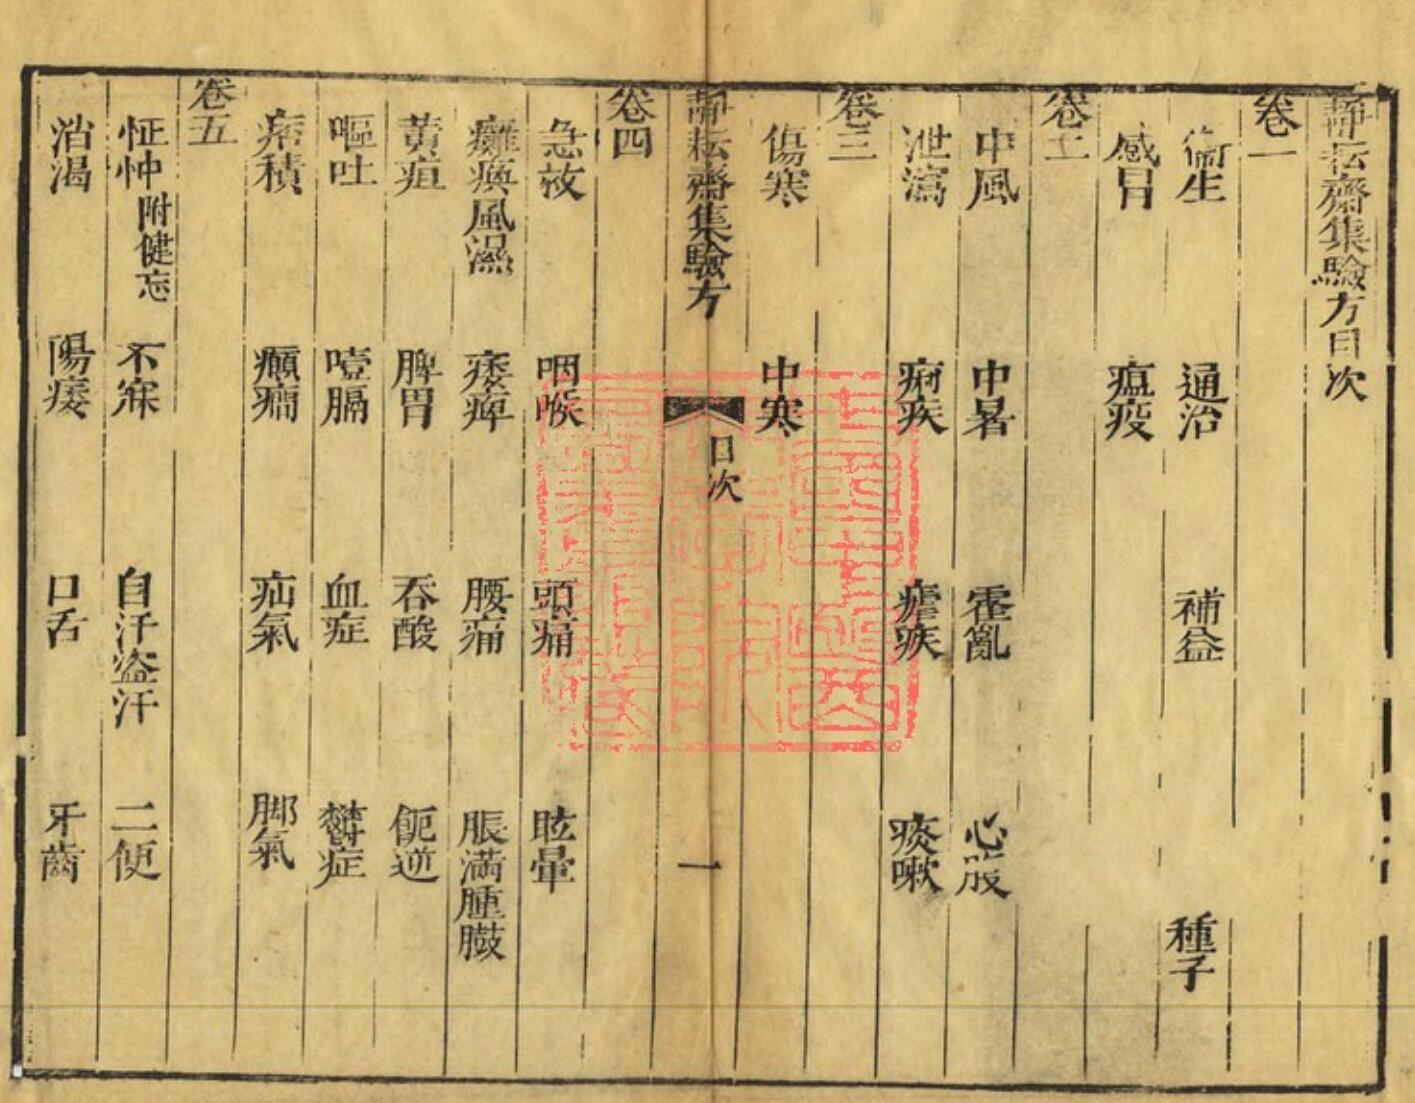 靜耘齋集驗方目次
卷一
衛生 通治 補益 種子
感冒 瘟疫
卷二
中風 中暑 霍亂 心腹
泄瀉 痢疾 瘧疾 痰嗽
卷三
傷寒 中寒
靜耘齋集驗方 目次 一
卷四
急救 咽喉 頭痛 眩暈
癱瘓風濕 痿痺 腰痛 脹滿腫臌
黃疸 脾胃 吞酸 呃逆
嘔吐 噎膈 血症 鬱症
痞積 癲癇 疝氣 脚氣
卷五
怔忡附健忘 不寐 自汗盗汗 二便
消渴 陽痿 口舌 牙齒